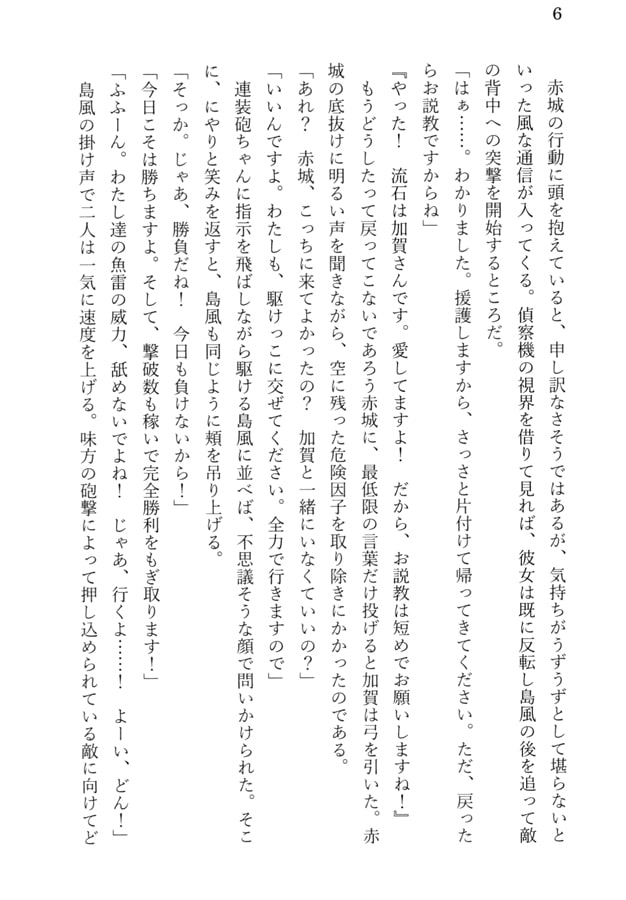 6
　赤城の行動に頭を抱えていると、申し訳なさそうではあるが、気持ちがうずうずとして堪らないと
いった風な通信が入ってくる。偵察機の視界を借りて見れば、彼女は既に反転し島風の後を追って敵
の背中への突撃を開始するところだ。
「はぁ……。わかりました。援護しますから、さっさと片付けて帰ってきてください。ただ、戻った
らお説教ですからね」
『やった！　流石は加賀さんです。愛してますよ！　だから、お説教は短めでお願いしますね！』
　もうどうしたって戻ってこないであろう赤城に、最低限の言葉だけ投げると加賀は弓を引いた。赤
城の底抜けに明るい声を聞きながら、空に残った危険因子を取り除きにかかったのである。
「あれ？　赤城、こっちに来てよかったの？　加賀と一緒にいなくていいの？」
「いいんですよ。わたしも、駆けっこに交ぜてください。全力で行きますので」
　連装砲ちゃんに指示を飛ばしながら駆ける島風に並べば、不思議そうな顔で問いかけられた。そこ
に、にやりと笑みを返すと、島風も同じように頬を吊り上げる。
「そっか。じゃあ、勝負だね！　今日も負けないから！」
「今日こそは勝ちますよ。そして、撃破数も稼いで完全勝利をもぎ取ります！」
「ふふーん。わたし達の魚雷の威力、舐めないでよね！　じゃあ、行くよ……！　よーい、どん！」
　島風の掛け声で二人は一気に速度を上げる。味方の砲撃によって押し込められている敵に向けてど